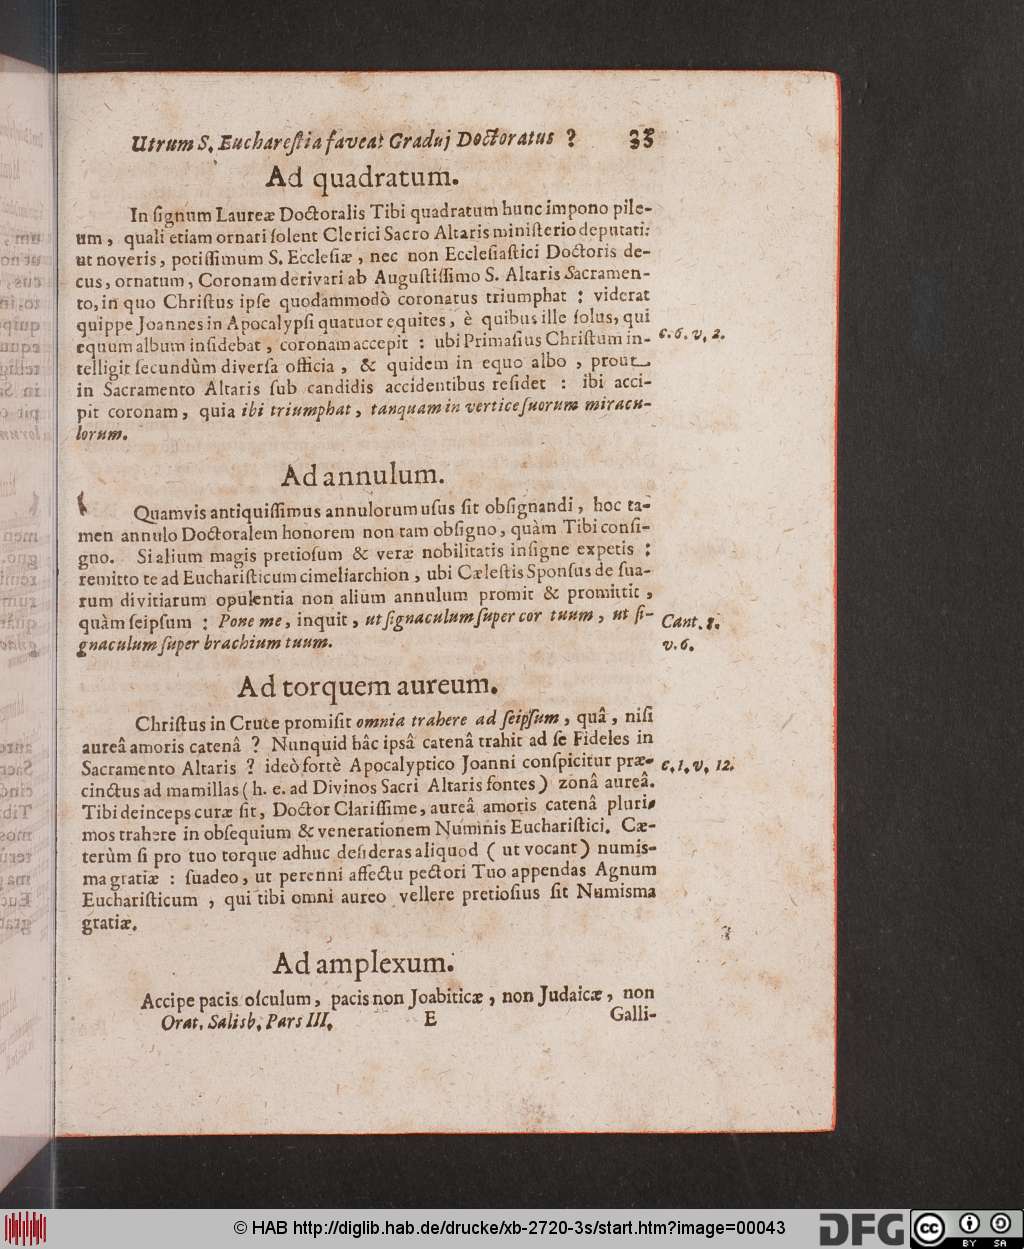 Utrum S. Euchareſtia faveat Graduj Doctoratus ? 35
Ad quadratum.
In ſignum Laureæ Doctoralis Tibi quadratum hunc impono pile-
um, quali etiam ornari ſolent Clerici Sacro Altaris miniſterio deputati:
ut noveris, potiſſimum S. Eccleſiæ, nec non Eccleſiaſtici Doctoris de-
cus, ornatum, Coronam derivari ab Auguſtiſſimo S. Altaris Sacramen-
to, in quo Chriſtus ipſe quodammodò coronatus triumphat : viderat
quippe Joannes in Apocalypſi quatuor equites, è quibus ille ſolus, qui
equum album inſidebat, coronam accepit : ubi Primaſius Chriſtum in-
c. 6. v. 2.
telligit ſecundùm diverſa officia, & quidem in equo albo, prout
in Sacramento Altaris ſub candidis accidentibus reſidet : ibi acci-
pit coronam, quia ibi triumphat, tanquam in vertice ſuorum miracu-
lorum.
Ad annulum.
Quamvis antiquiſſimus annulorum uſus ſit obſignandi, hoc ta-
men annulo Doctoralem honorem non tam obſigno, quàm Tibi conſi-
gno. Si alium magis pretioſum & veræ nobilitatis inſigne expetis ;
remitto te ad Euchariſticum cimeliarchion, ubi Cæleſtis Sponſus de ſua-
rum divitiarum opulentia non alium annulum promit & promittit,
quàm ſeipſum : Pone me, inquit, ut ſignaculum ſuper cor tuum, ut ſi-
Cant. 8.
gnaculum ſuper brachium tuum.
v. 6.
Ad torquem aureum.
Chriſtus in Cruce promiſit omnia trahere ad ſeipſum, quâ, niſi
aureâ amoris catenâ ? Nunquid hâc ipsâ catenâ trahit ad ſe Fideles in
Sacramento Altaris ? ideò fortè Apocalyptico Joanni conſpicitur præ-
c. 1. v. 12.
cinctus ad mamillas ( h. e. ad Divinos Sacri Altaris fontes ) zonâ aureâ.
Tibi deinceps curæ ſit, Doctor Clariſſime, aureâ amoris catenâ pluri-
mos trahere in obſequium & venerationem Numinis Euchariſtici. Cæ-
terùm ſi pro tuo torque adhuc deſideras aliquod ( ut vocant ) numis-
ma gratiæ : ſuadeo, ut perenni affectu pectori Tuo appendas Agnum
Euchariſticum, qui tibi omni aureo vellere pretioſius ſit Numisma
gratiæ.
Ad amplexum.
Accipe pacis oſculum, pacis non Joabiticæ, non Judaicæ, non
Orat. Salisb. Pars III. E Galli-
© HAB http://diglib.hab.de/drucke/xb-2720-3s/start.htm?image=00043
DFG
cc BY SA